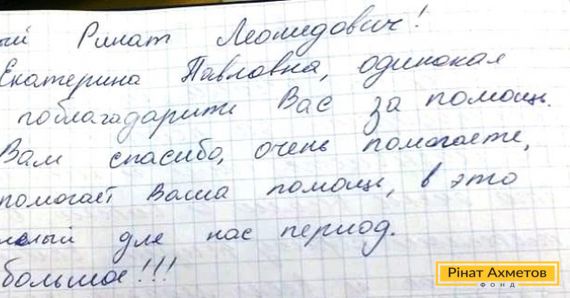 ый Ринат Леонидович!
Екатерина Павловна, одинокая
поблагодарить Вас за помощь.
Вам спасибо, очень помогаете,
помогает Ваша помощь, в это
для нас период.
большое!!!
Рінат Ахметов
ФОНД